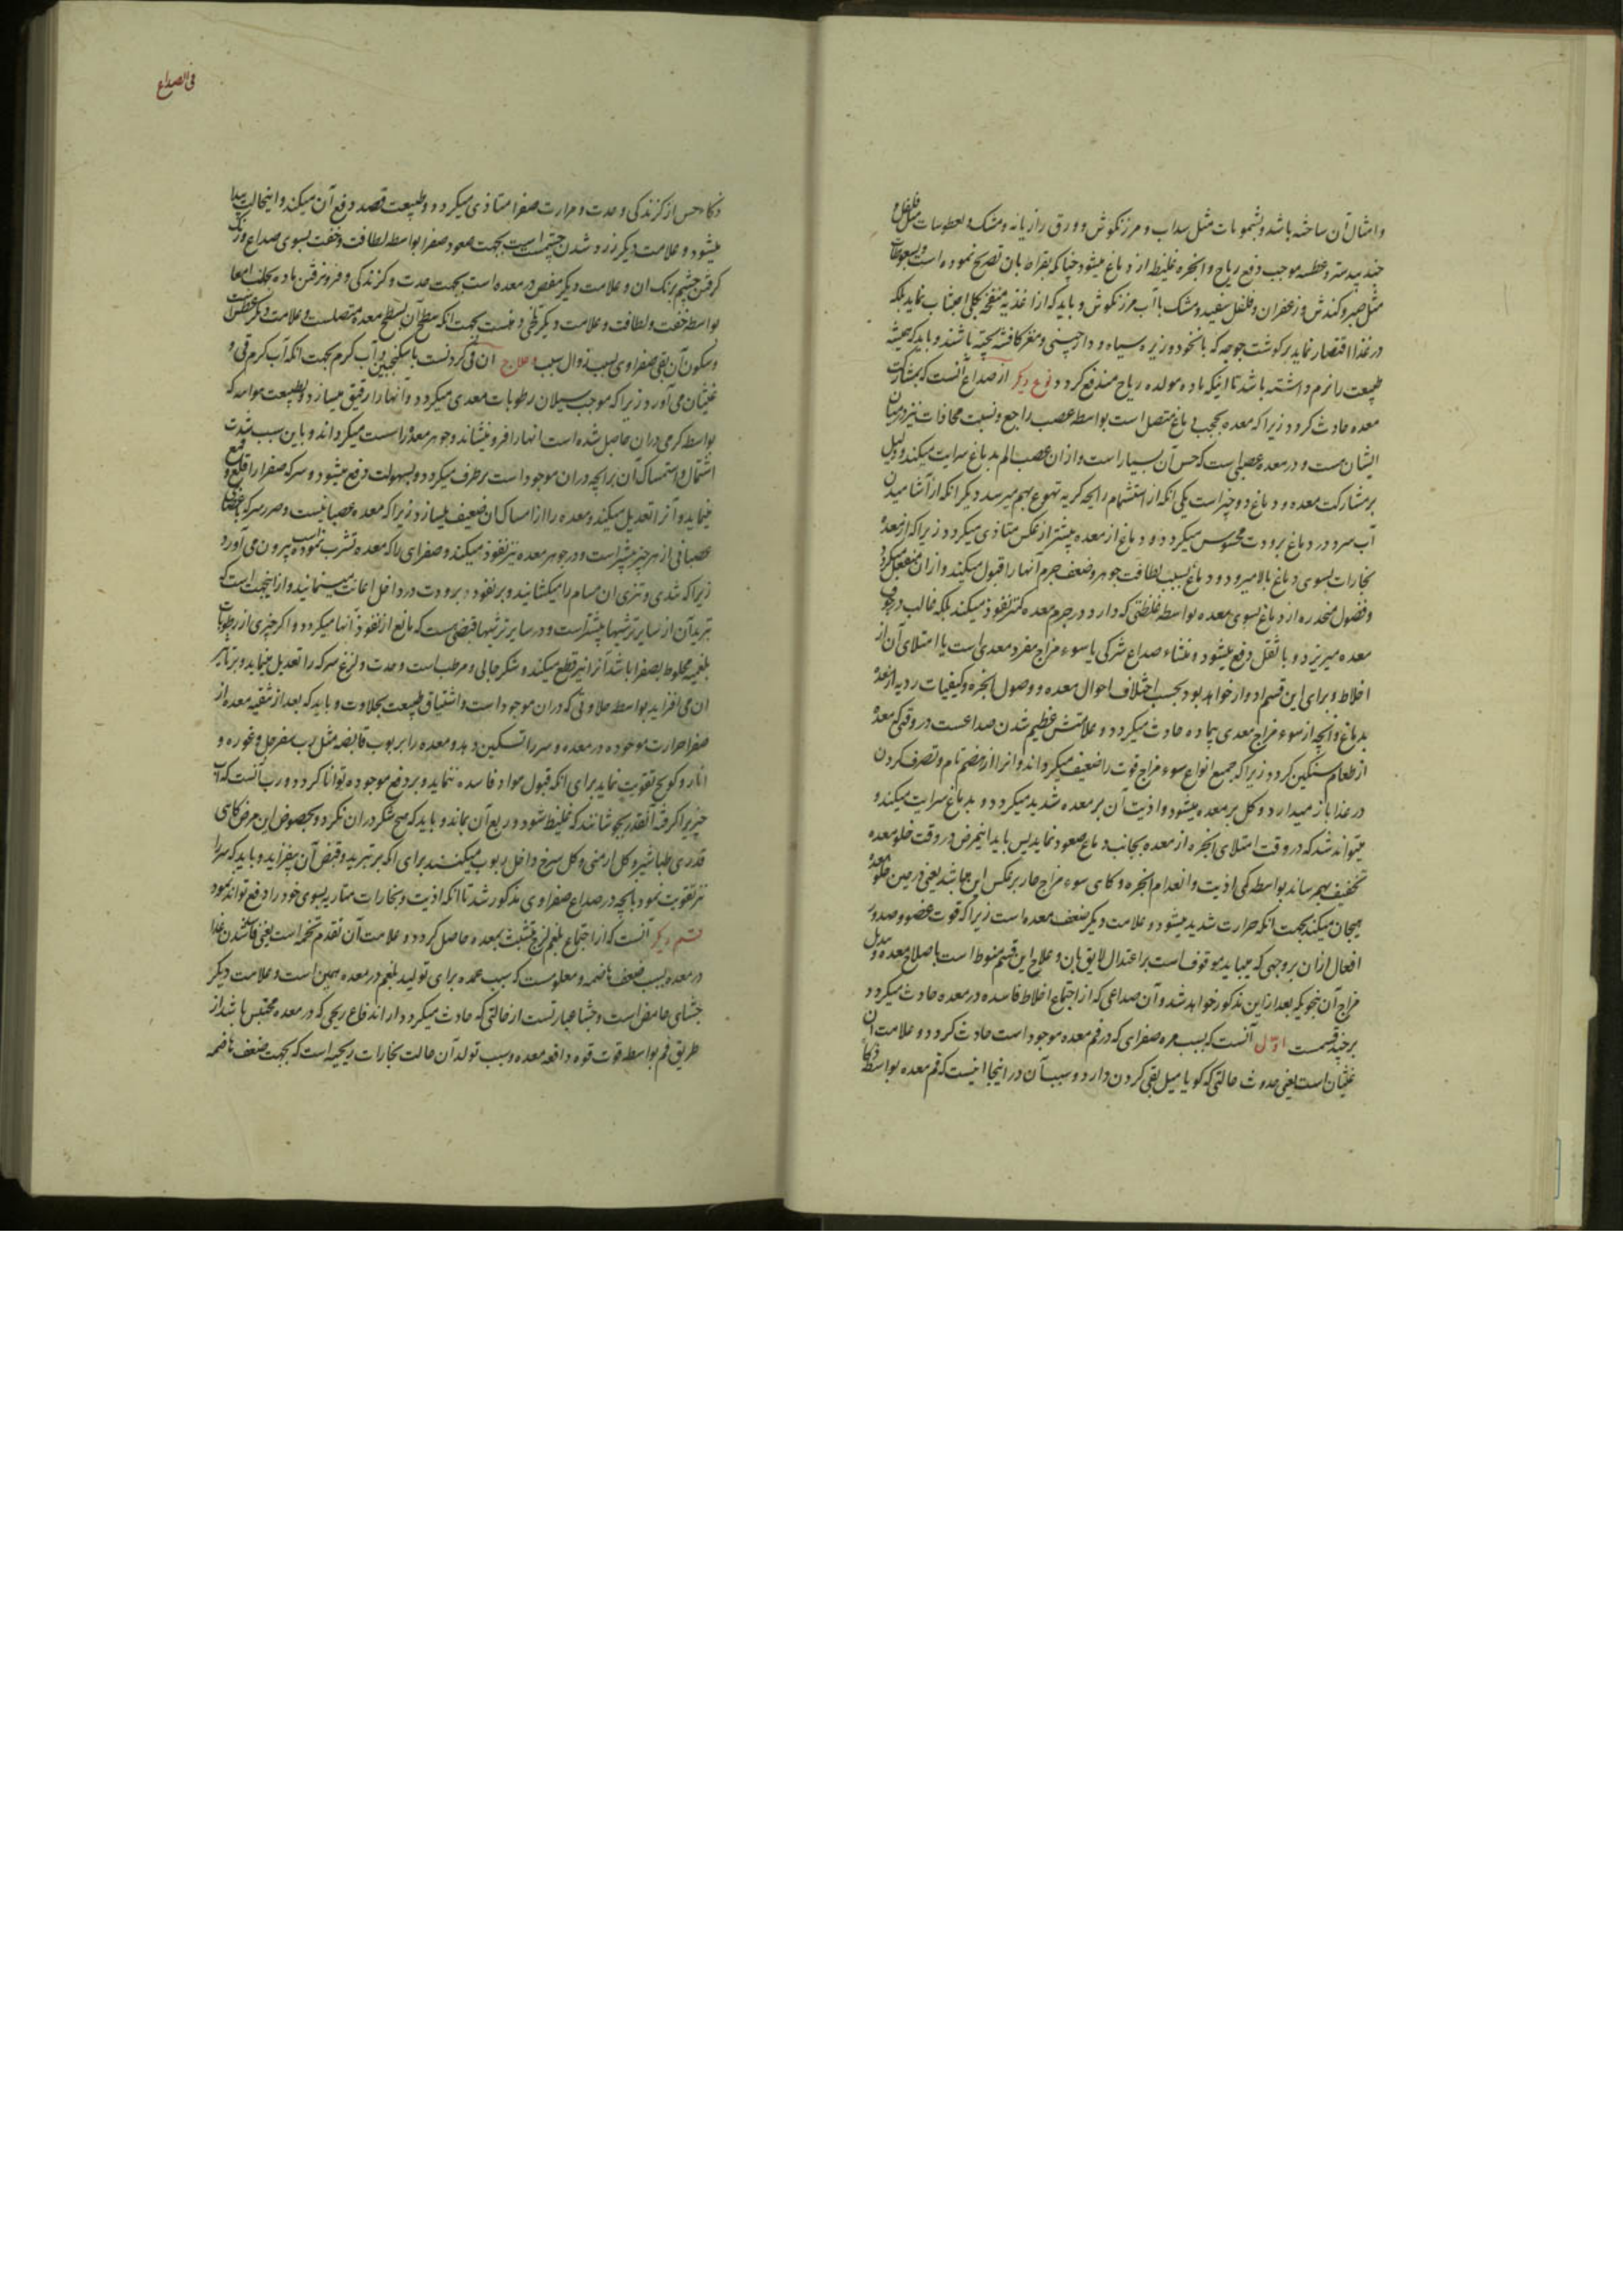 و امثال آن ساخته باشد و بشمومات مثل سداب و مرزنکوش و ورق رازیانه و مشک و بعطوسات مثل فلفل و
جندبیدستر و عطسه موجب دفع ریاح و ابخره غلیظ از دماغ میشود چنانکه بقراط بان تصریح نموده است و بسعوطات
مثل صبر و کندش و زعفران و فلفل سفید و مشک با آب مرزنکوش و باید که از اغذیه منفخه بکلی اجتناب نماید بلکه
در غذا اقتصار نماید بر کوشت جوجه که با نخود و زیره سیاه و دارچینی و مغز کافشه پخته باشند و باید که همیشه
طبیعت را نرم داشته باشد تا اینکه ماده مولده ریاح مندفع کردد نوع دیکر از صداع آنست که بمشارکت
معده حادث کردد زیرا که معده بحجب دماغ متصل است بواسطه عصب راجع و نسبت محاذات نیز درمیان
ایشان هست و در معده عصبی است که حس آن بسیار است و از ان عصب الم بدماغ سرایت میکند و دلیل
بر مشارکت معده و دماغ دو چیز است یکی انکه از استشمام رایحه کریه تهوع بهم میرسد دیکر انکه از آشامیدن
آب سرد در دماغ برودت محسوس میکردد و دماغ از معده بیشتر از عکس متاذی میکردد زیرا که از معده
بخارات بسوی دماغ بالا میرود و دماغ بسبب لطافت جوهر و ضعف جرم آنها را قبول میکند و از ان منفعل میکردد
و فضول منحدره از دماغ بسوی معده بواسطه غلظتی که دارد در جرم معده کمتر نفوذ میکند بلکه غالب در جوف
معده میریزد و با ثقل دفع میشود و منشاء صداع شرکی یا سوء مزاج مفرد معدی است یا امتلای آن از
اخلاط و برای این قسم ادوار خواهد بود بحسب اختلاف احوال معده و وصول ابخره و کیفیات ردیه از معده
بدماغ و آنچه از سوء مزاج معدی بیماده حادث میکردد و علامتش عظیم شدن صداعست در وقتی که معده
از طعام سنکین کردد زیرا که جمیع انواع سوء مزاج قوت را ضعیف میکرداند و انرا از هضم تام و تصرف کردن
در غذا باز میدارد و کل بر معده میشود و اذیت آن بر معده شدید میکردد و بدماغ سرایت میکند و
میتواند شد که در وقت امتلای ابخره از معده بجانب دماغ صعود نماید پس باید اینمرض در وقت خلو معده
تخفیف بهم رساند بواسطه کمی اذیت و انعدام ابخره و کاهی سوء مزاج حار بر عکس این میباشد یعنی در حین خلو معده
هیجان میکند بجهت انکه حرارت شدید میشود و علامت دیکر ضعف معده است زیرا که قوت عضو و صدور
افعال از ان بر وجهی که میباید موقوف است بر اعتدال لایق بان و علاج این قسم منوط است باصلاح معده و تبدیل
مزاج آن بنحویکه بعد از این مذکور خواهد شد و آن صداعی که از اجتماع اخلاط فاسده در معده حادث میکردد
بر چند قسمست اول آنست که بسبب مره صفرای که در فم معده موجود است حادث کردد و علامت ان
غثیان است یعنی حدوث حالتی که کویا میل بقی کردن دارد و سبب آن در اینجا اینست که فم معده بواسطه
فی الصداع
ذکاء حس از کزندکی و حدت و مرارت صفرا متاذی میکردد و طبیعت قصد دفع آن میکند و اینحالت پیدا
میشود و علامت دیکر زرد شدن چشم است بجهت صعود صفرا بواسطه لطافت و خفت بسوی صداع و رنک
کرفتن چشم برنک ان و علامت دیکر مغص در معده است بجهت حدت و کزندکی و فرو رفتن ماده بجانب امعا
بواسطه خفت و لطافت و علامت دیکر تلخی دهنست بجهت انکه سطح آن بسطح معده متصلست و علامت دیکر عطش است
و سکون آن بقی صفراوی بسبب زوال سبب و علاج ان قی کردنست با سکنجبین و آب کرم بجهت انکه آب کرم قی و
غثیان می آورد زیرا که موجب سیلان رطوبات معدی میکردد و آنها را رقیق میسازد و طبیعت هوا مد که
بواسطه کرمی در ان حاصل شده است انها را فرو نیشاند و جوهر معده را سست میکرداند و باین سبب شدت
اشتمال و استمساک آن بر آنچه در ان موجود است بر طرف میکردد و بسهولت دفع میشود و سرکه صفرا را قلع و قمع
مینماید و آنرا تعدیل میکند و معده را از امساک ان ضعیف میسازد زیرا که معده عصبانیست و ضرر سرکه باعضای
عصبانی از هر چیز بیشتر است و در جوهر معده نیز نفوذ میکند و صفرای را که معده تشرب نموده است بیرون می آورد
زیرا که تندی و تیزی ان مسام را میکشاید و بر نفوذ برودت در داخل اعانت مینماید و از اینجهت است که
تبرید آن از سایر ترشیها بیشتر است و در سایر ترشیها قبضی هست که مانع از نفوذ آنها میکردد و اکر چیزی از رطوبات
بلغمیه مخلوط بصفرا باشد آنرا نیز قطع میکند و شکر جالی و مرطب است و حدت و لزع سرکه را تعدیل مینماید و بر تاثیر
ان می افزاید بواسطه حلاوتی که در ان موجود است و اشتیاق طبیعت بحلاوت و باید که بعد از تنقیه معده از
صفرا حرارت موجوده در معده و سر را تسکین دهد و معده را بر بوب قابضه مثل رب سفرجل و غوره و
انار و کویج تقویت نماید برای انکه قبول مواد فاسده ننماید و بر دفع موجوده توانا کردد و رب آنست که آب
چیزیرا کرفته آنقدر بجوشانند که غلیظ شود و ربع آن بماند و باید که هیچ شکر در ان نکند و بخصوص این مرض کاهی
قدری طباشیر و کل ارمنی و کل سرخ داخل ربوب میکنند برای انکه بر تبرید و قبض آن بیفزاید و باید که سر را
نیز تقویت نمود بآنچه در صداع صفراوی مذکور شد تا انکه اذیت و بخارات متاریه بسوی خود را دفع تواند نمود
قسم دیکر آنست که از اجتماع بلغم لزج متشبث بمعده حاصل کردد و علامت آن تقدم تخمه است یعنی فاسد شدن غذا
در معده بسبب ضعف هاضمه و معلومست که سبب عمده برای تولید بلغم در معده همین است و علامت دیکر
جشای حامض است و جشا عبارتست از حالتی که حادث میکردد از اندفاع ریحی که در معده محتبس باشد از
طریق فم بواسطه قوت قوه دافعه معده و سبب تولد آن حالت بخارات ریحیه است که بجهت ضعف هاضمه